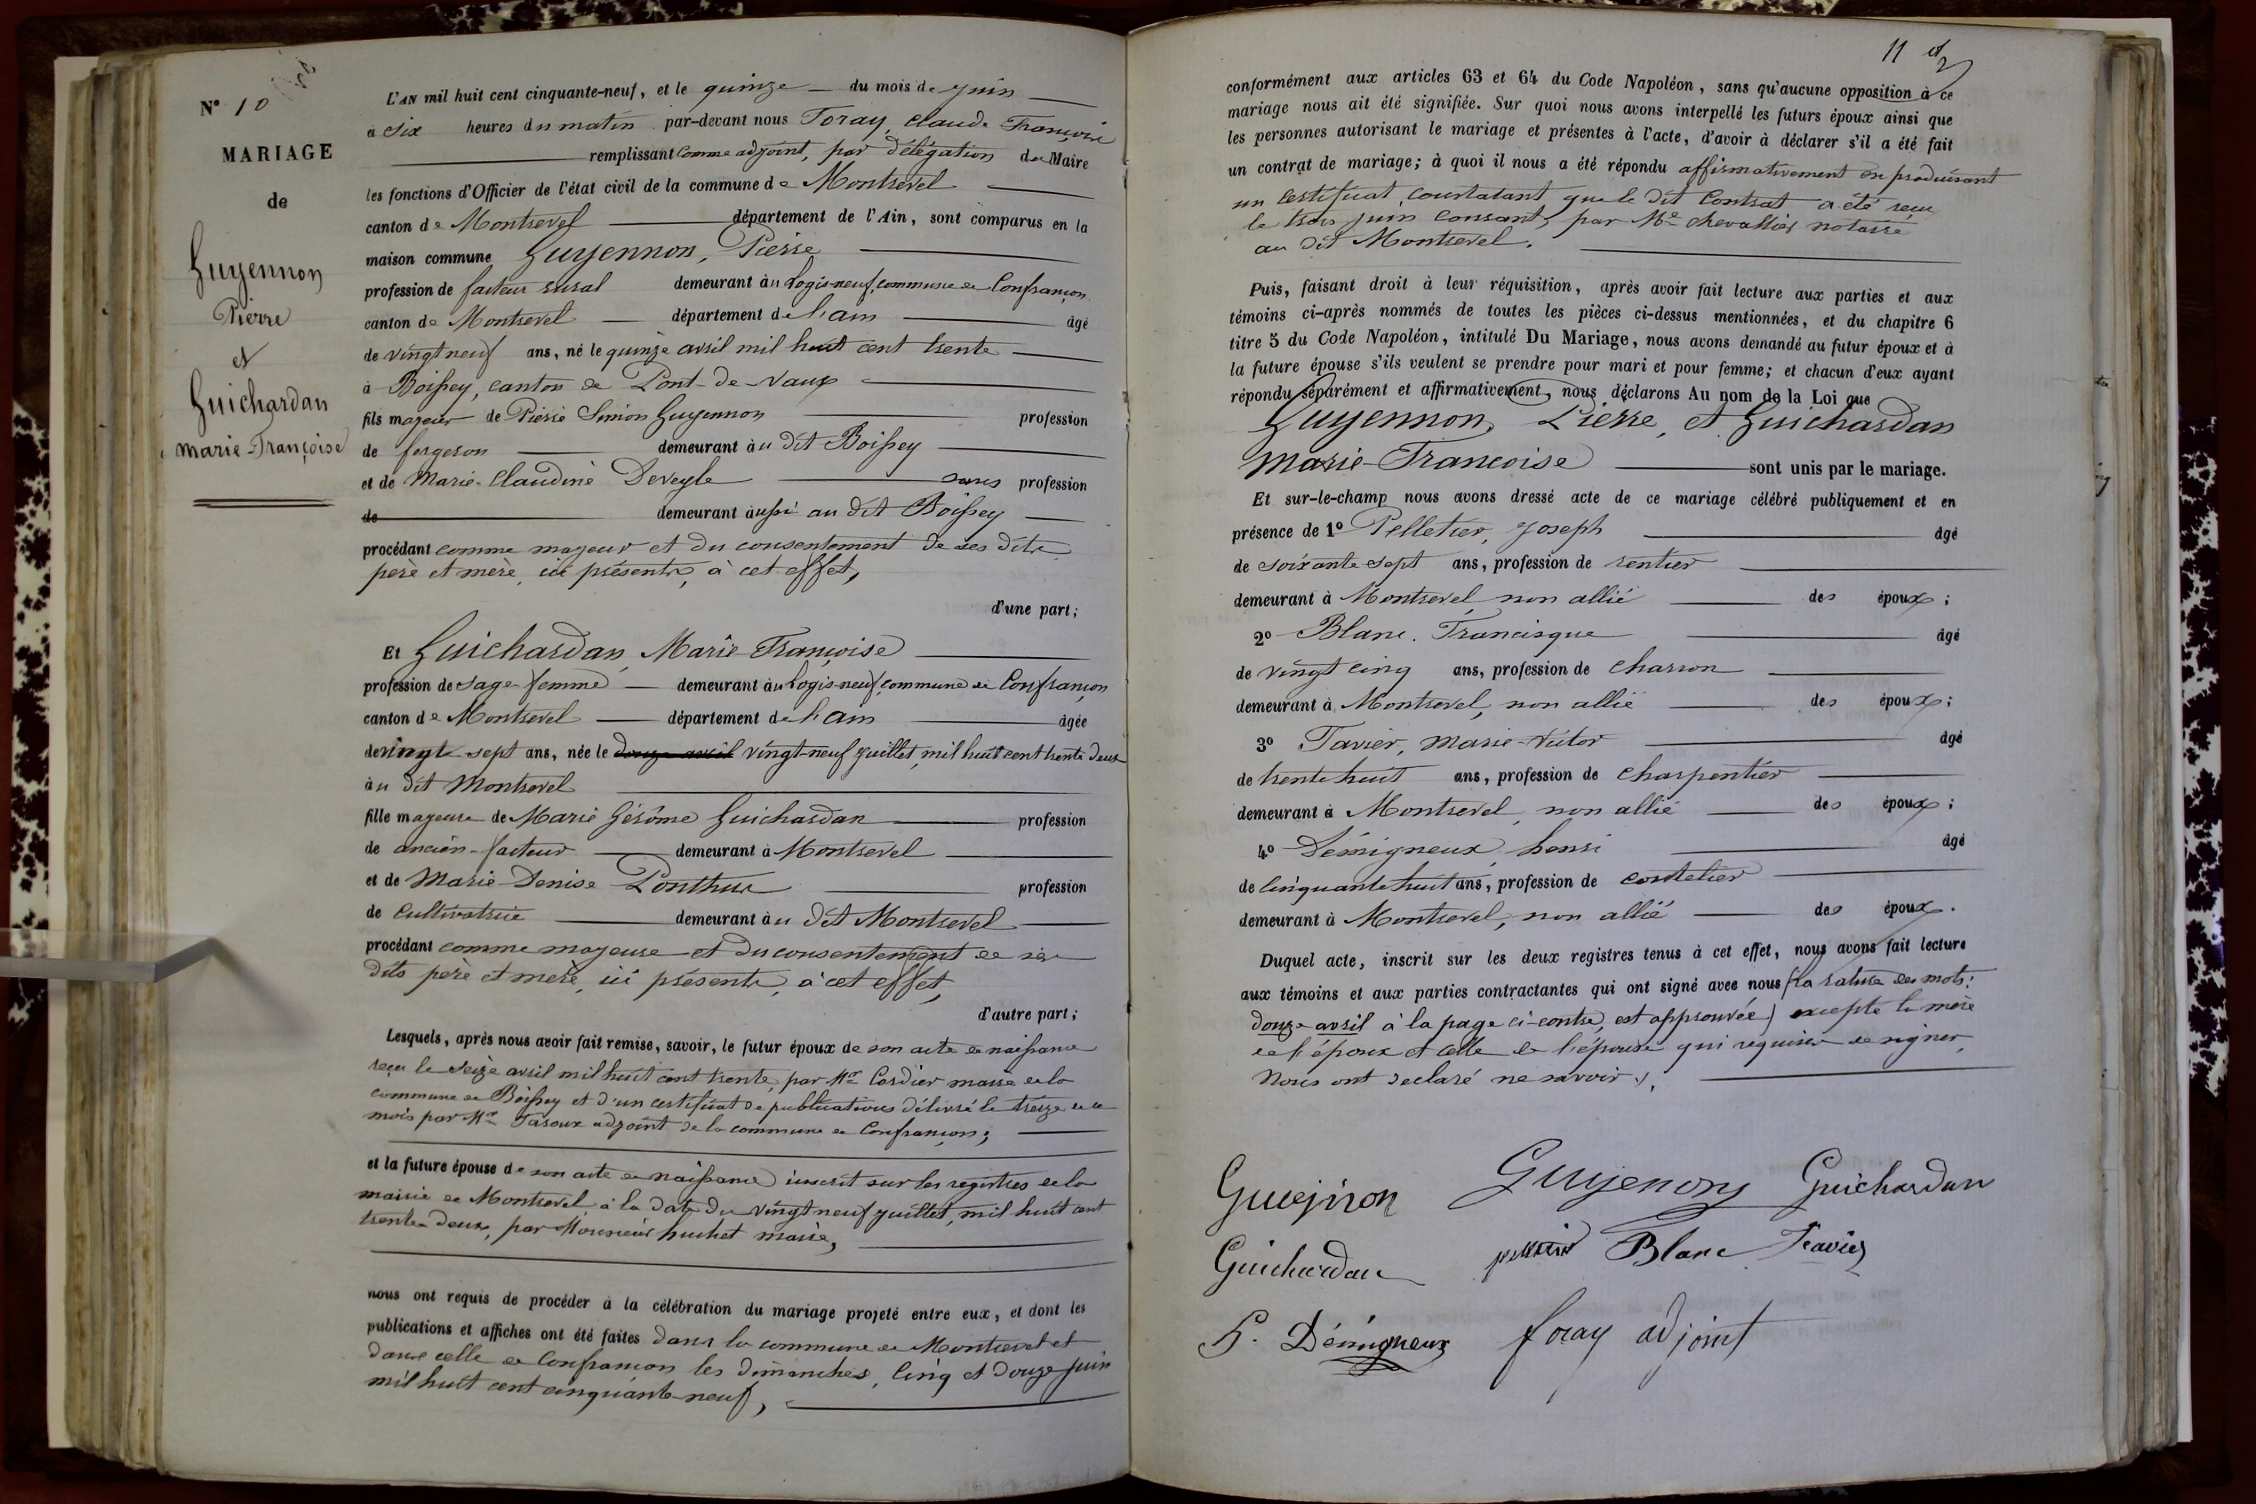 N° 10
MARIAGE
de
Guyennon
Pierre
et
Guichardan
marie-Françoise
L'AN mil huit cent cinquante-neuf, et le quinze du mois de juin
à six heures du matin par-devant nous Foray, Claude François
remplissant comme adjoint, par délégation du Maire
les fonctions d'Officier de l'état civil de la commune de Montrevel
canton de Montrevel département de l'Ain, sont comparus en la
maison commune Guyennon, Pierre
profession de facteur rural demeurant àu Logis-neuf, commune de Confrançon
canton de Montrevel département de l'ain âgé
de vingt neuf ans, né le quinze avril mil huit cent trente
à Boissey, canton de Pont-de-Vaux
fils majeur de Pierre Simon Guyennon profession
de forgeron demeurant àu dit Boissey
et de Marie-Claudine Deveyle sans profession
de demeurant àussi au dit Boissey
procédant comme majeur et du consentement de ses dits
père et mère, ici présents, à cet effet,
d'une part;
Et Guichardan, Marie-Françoise
profession de sage-femme demeurant àu Logis-neuf, commune de Confrançon
canton de Montrevel département de l'ain âgée
de vingt sept ans, née le douze avril vingt-neuf juillet, mil huit cent trente deux
àu dit Montrevel
fille majeure de Marie Gérôme Guichardan profession
de ancien-facteur demeurant à Montrevel
et de Marie-Denise Ponthus profession
de cultivatrice demeurant àu dit Montrevel
procédant comme majeure et du consentement de ses
dits père et mère, ici présents, à cet effet,
d'autre part;
Lesquels, après nous avoir fait remise, savoir, le futur époux de son acte de naissance
reçu le seize avril mil huit cent trente, par Mr Cordier maire de la
commune de Boissey et d'un certificat de publications délivré le treize de ce
mois par Mr adjoint de la commune de Confrançon;
et la future épouse de son acte de naissance inscrit sur les registres de la
mairie de Montrevel à la date du vingt neuf juillet, mil huit cent
trente-deux, par Monsieur huchet maire,
nous ont requis de procéder à la célébration du mariage projeté entre eux, et dont les
publications et affiches ont été faites dans la commune de Montrevel et
dans celle de Confrançon les dimanches, cinq et douze juin
mil huit cent cinquante-neuf,
11
conformément aux articles 63 et 64 du Code Napoléon, sans qu'aucune opposition à ce
mariage nous ait été signifiée. Sur quoi nous avons interpellé les futurs époux ainsi que
les personnes autorisant le mariage et présentes à l'acte, d'avoir à déclarer s'il a été fait
un contrat de mariage; à quoi il nous a été répondu affirmativement en produisant
un certificat, constatant que le dit Contrat a été reçu
le trois juin courant, par Me Chevallier notaire
au dit Montrevel.
Puis, faisant droit à leur réquisition, après avoir fait lecture aux parties et aux
témoins ci-après nommés de toutes les pièces ci-dessus mentionnées, et du chapitre 6
titre 5 du Code Napoléon, intitulé Du Mariage, nous avons demandé au futur époux et à
la future épouse s'ils veulent se prendre pour mari et pour femme; et chacun d'eux ayant
répondu séparément et affirmativement, nous déclarons Au nom de la Loi que
Guyennon, Pierre, et Guichardan
Marie-Françoise sont unis par le mariage.
Et sur-le-champ nous avons dressé acte de ce mariage célébré publiquement et en
présence de 1° Pelletier, Joseph âgé
de soixante sept ans, profession de rentier
demeurant à Montrevel, non allié des époux;
2° Blanc. Francisque âgé
de vingt cinq ans, profession de charron
demeurant à Montrevel, non allié des époux;
3° Favier, Marie-Victor âgé
de trente huit ans, profession de charpentier
demeurant à Montrevel, non allié des époux;
4° Démigneux, henri âgé
de cinquante huit ans, profession de coutelier
demeurant à Montrevel, non allié des époux.
Duquel acte, inscrit sur les deux registres tenus à cet effet, nous avons fait lecture
aux témoins et aux parties contractantes qui ont signé avec nous (la rature des mots:
douze avril à la page ci-contre, est approuvée) excepté la mère
de l'époux et celle de l'épouse qui requises de signer,
Nous ont declaré ne savoir.
Guyenon Guichardan
Guichardan pelletier Blanc Favier
h. Démigneux foray adjoint